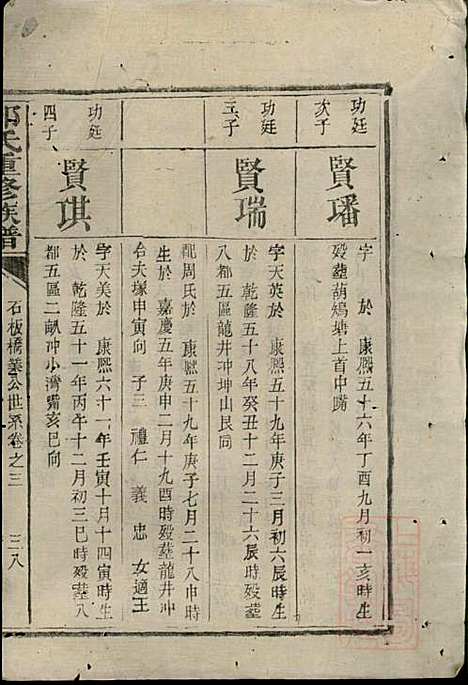 功廷
次子
賢璠
字　於　康熙五十六年丁酉九月初一亥時生
歿葬葫蘆塘上首中嘴
功廷
三子
賢瑞
字天英於　康熙五十九年庚子三月初六辰時生
於　乾隆五十八年癸丑十二月二十六辰時歿葬
八都五區龍井冲坤山艮向
配周氏於　康熙五十九年庚子七月二十八申時
生於　嘉慶五年庚申二月十九酉時歿葬龍井冲
右夫塚申寅向　子三　禮仁　義　忠　女適王
功廷
四子
賢琪
字天美於　康熙六十一年壬寅十月十四寅時生
於　乾隆五十一年丙午十二月初三巳時歿葬八
都五區二畝冲小灣嘴亥巳向
氏重修族譜
石板橋業公世系卷之三
三八